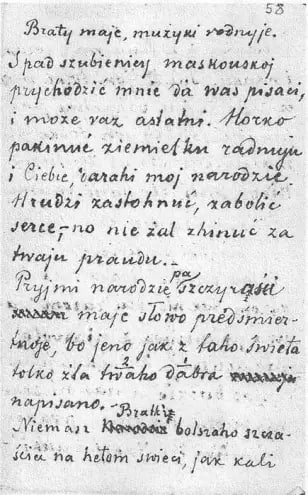 58
Braty maje, mużyki rodnyje.
Z pad szubienicy maskouskoj
prychodzić mnie da was pisaci,
i może raz astatni. Horko
pakinuć ziemielku radnuju
i Ciebie, darahi moj narodzie
Hrudzi zastohnuć, zabolić
serce,- no nie żal zhinuć za
twaju praudu.-
Pryjmi narodzie pa szczyraści
maje słowo predśmier-
tnoje, bo jeno jak z taho świeta
tolko dla twaho dabra
napisano.
Bratkiż
Niemasz bolszaho szcza-
ścia na hetom świeci, jak kali